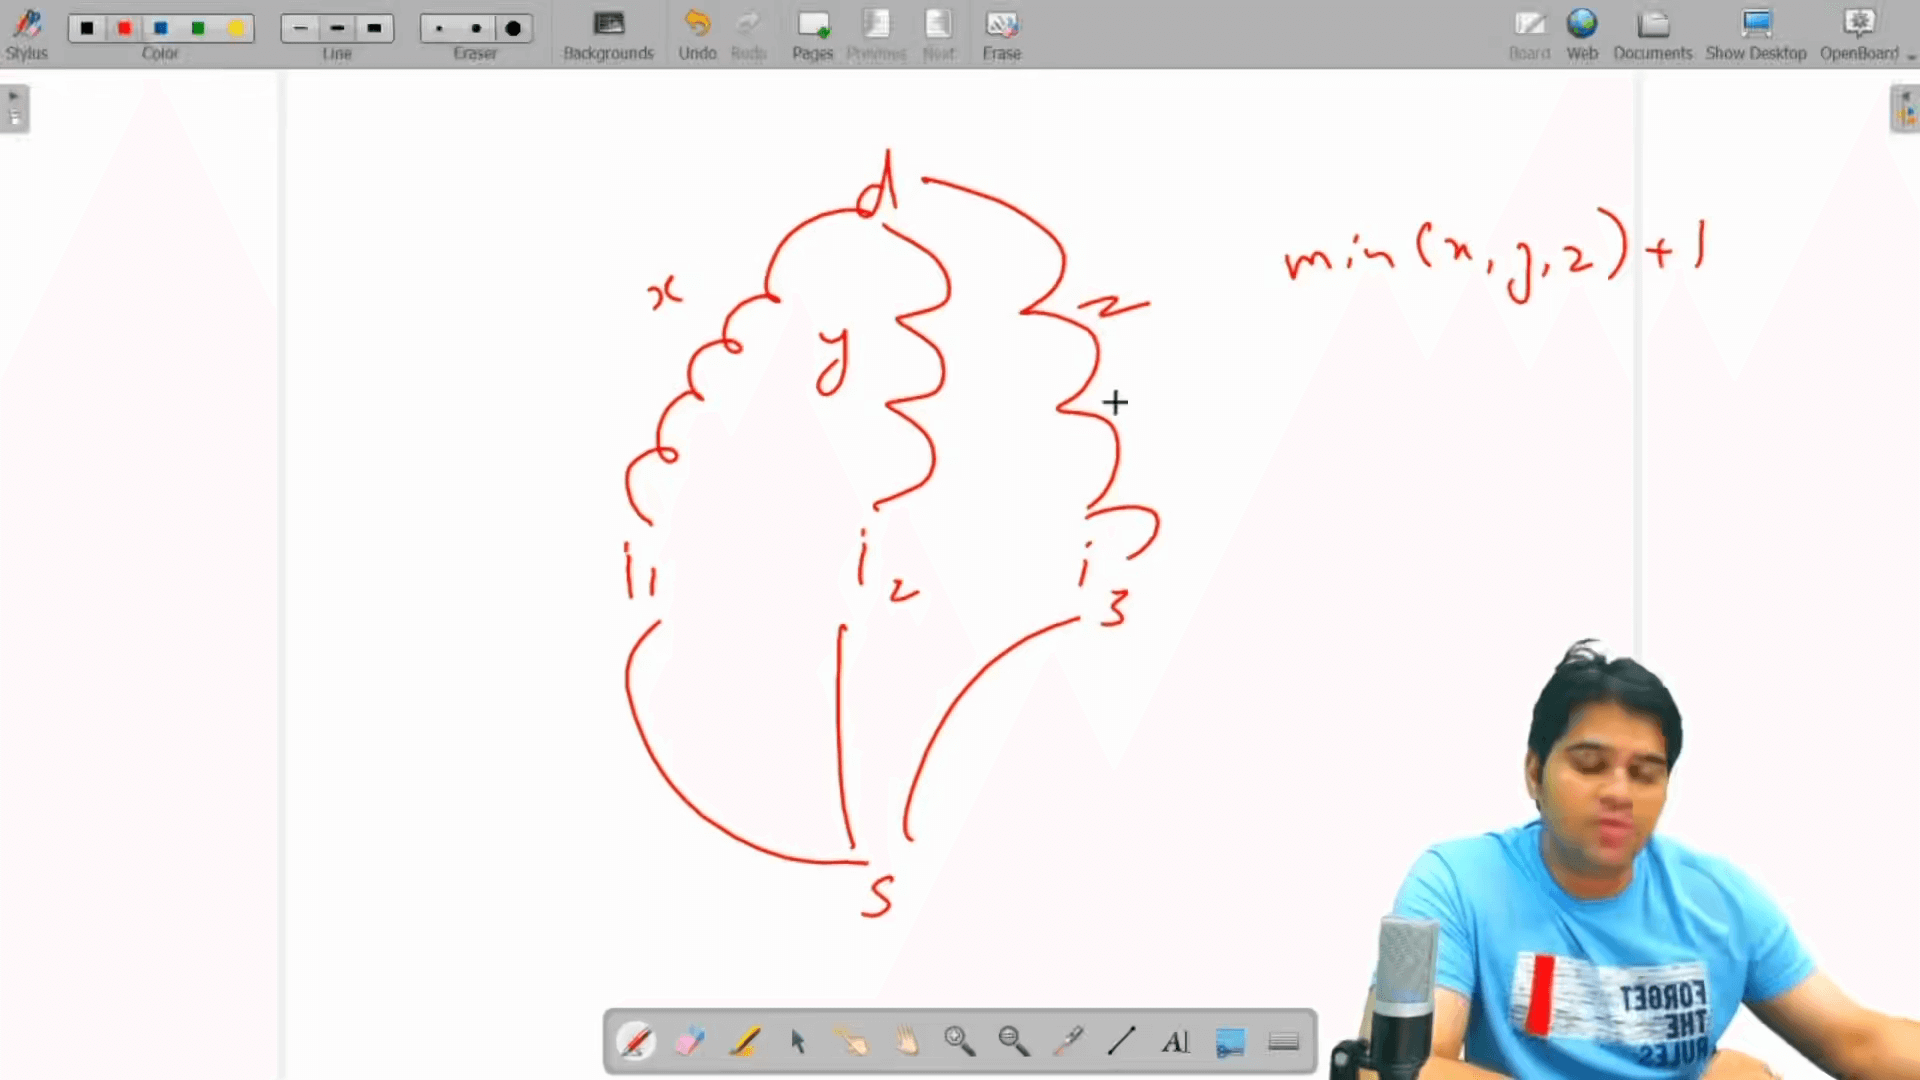 Stylus
Color
Line
Eraser
Backgrounds
Undo
Redo
Pages
Previous
Next
Erase
Board
Web
Documents
Show Desktop
OpenBoard
d
x
y
z
min(x, y, z) + 1
i1
i2
i3
s
AI
FORGET
THE
RULES